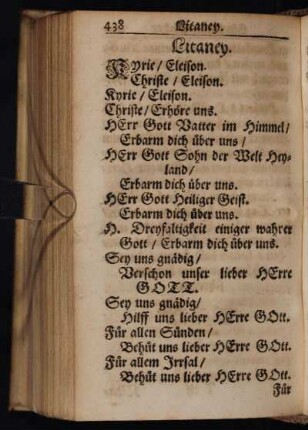 438 Litaney.
Litaney.
Kyrie / Eleison.
Christe / Eleison.
Kyrie / Eleison.
Christe / Erhöre uns.
HErr Gott Vatter im Himmel /
Erbarm dich über uns /
HErr Gott Sohn der Welt Hey-
land /
Erbarm dich über uns.
HErr Gott Heiliger Geist.
Erbarm dich über uns.
H. Dreyfaltigkeit einiger wahrer
Gott / Erbarm dich über uns.
Sey uns gnädig /
Verschon unser lieber HErre
GOTT.
Sey uns gnädig /
Hilff uns lieber HErre GOtt.
Für allen Sünden /
Behüt uns lieber HErre GOtt.
Für allem Irrsal /
Behüt uns lieber HErre GOtt.
Für